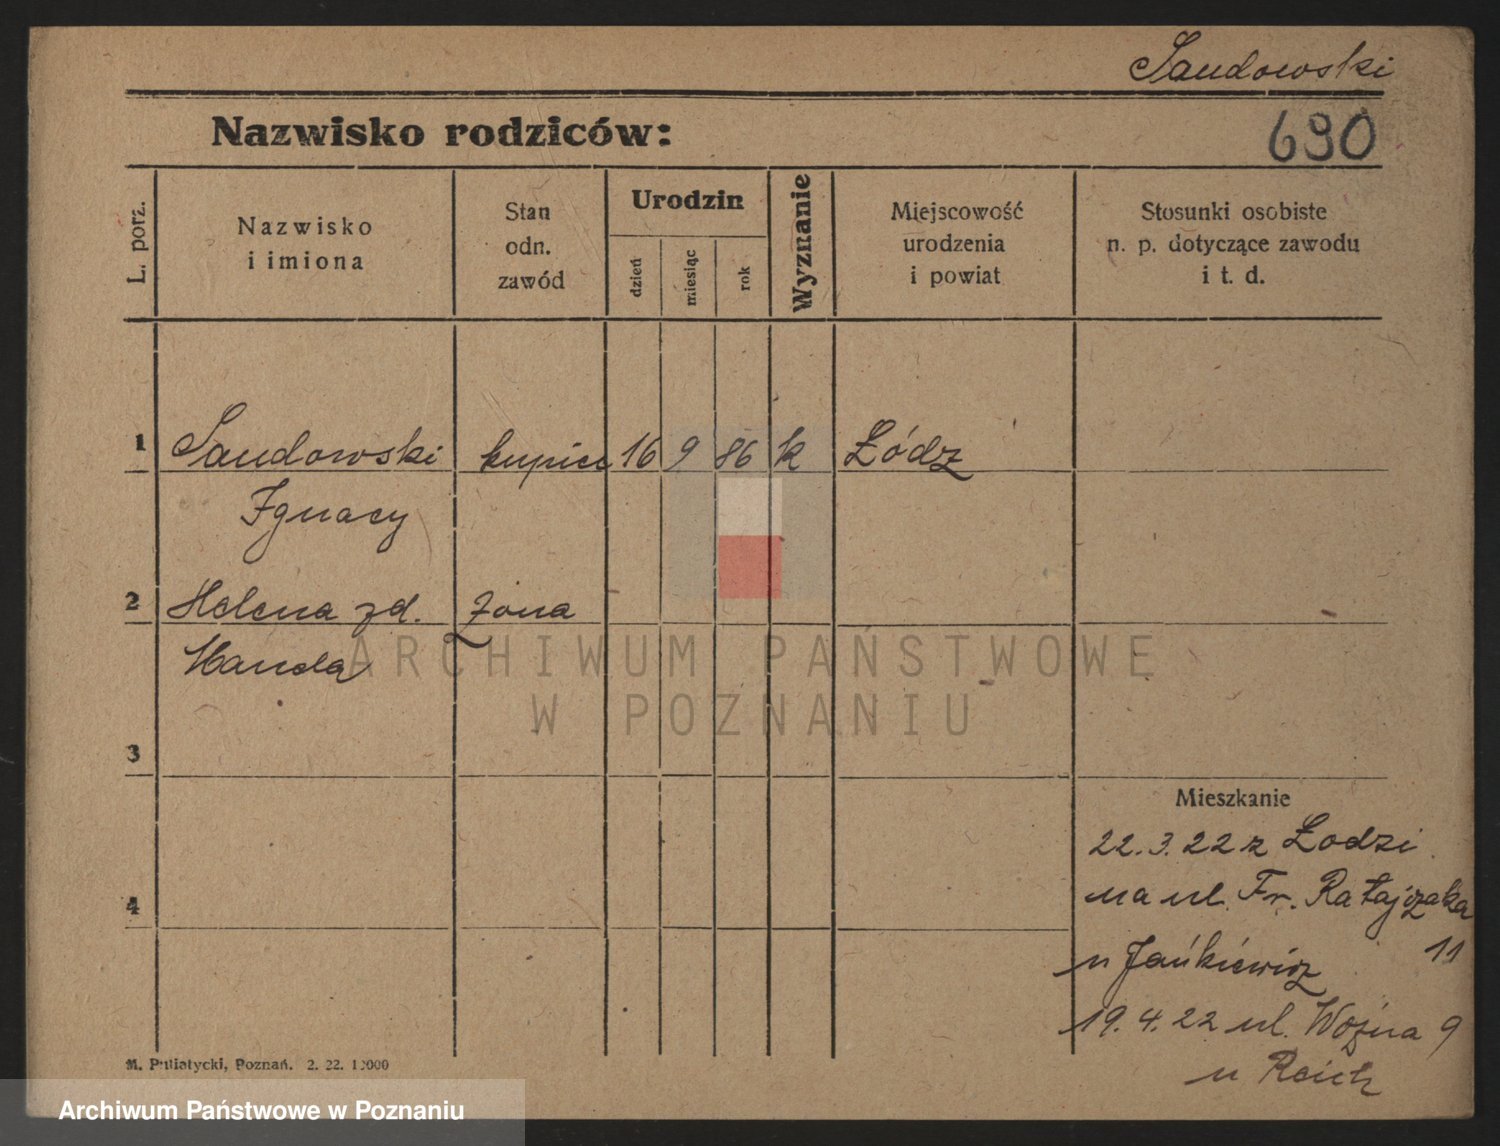 Sandowski
Nazwisko rodziców:
690
L. porz.
Nazwisko
i imiona
Stan
odn.
zawód
Urodzin
dzień
miesiąc
rok
Wyznanie
Miejscowość
urodzenia
i powiat
Stosunki osobiste
n. p. dotyczące zawodu
i t. d.
1 Sandowski kupiec 16 9 86 k Łódz
Ignacy
2 Helena zd. żona
Manda
ARCHIWUM PAŃSTWOWE
W POZNANIU
3
Mieszkanie
22.3.22 z Łodzi
4
na ul. Fr. Ratajczaka
11
u Jańkiewicz
19.4.22 ul. Woźna 9
u Reich
M. Putiatycki, Poznań. 2. 22. 12000
Archiwum Państwowe w Poznaniu